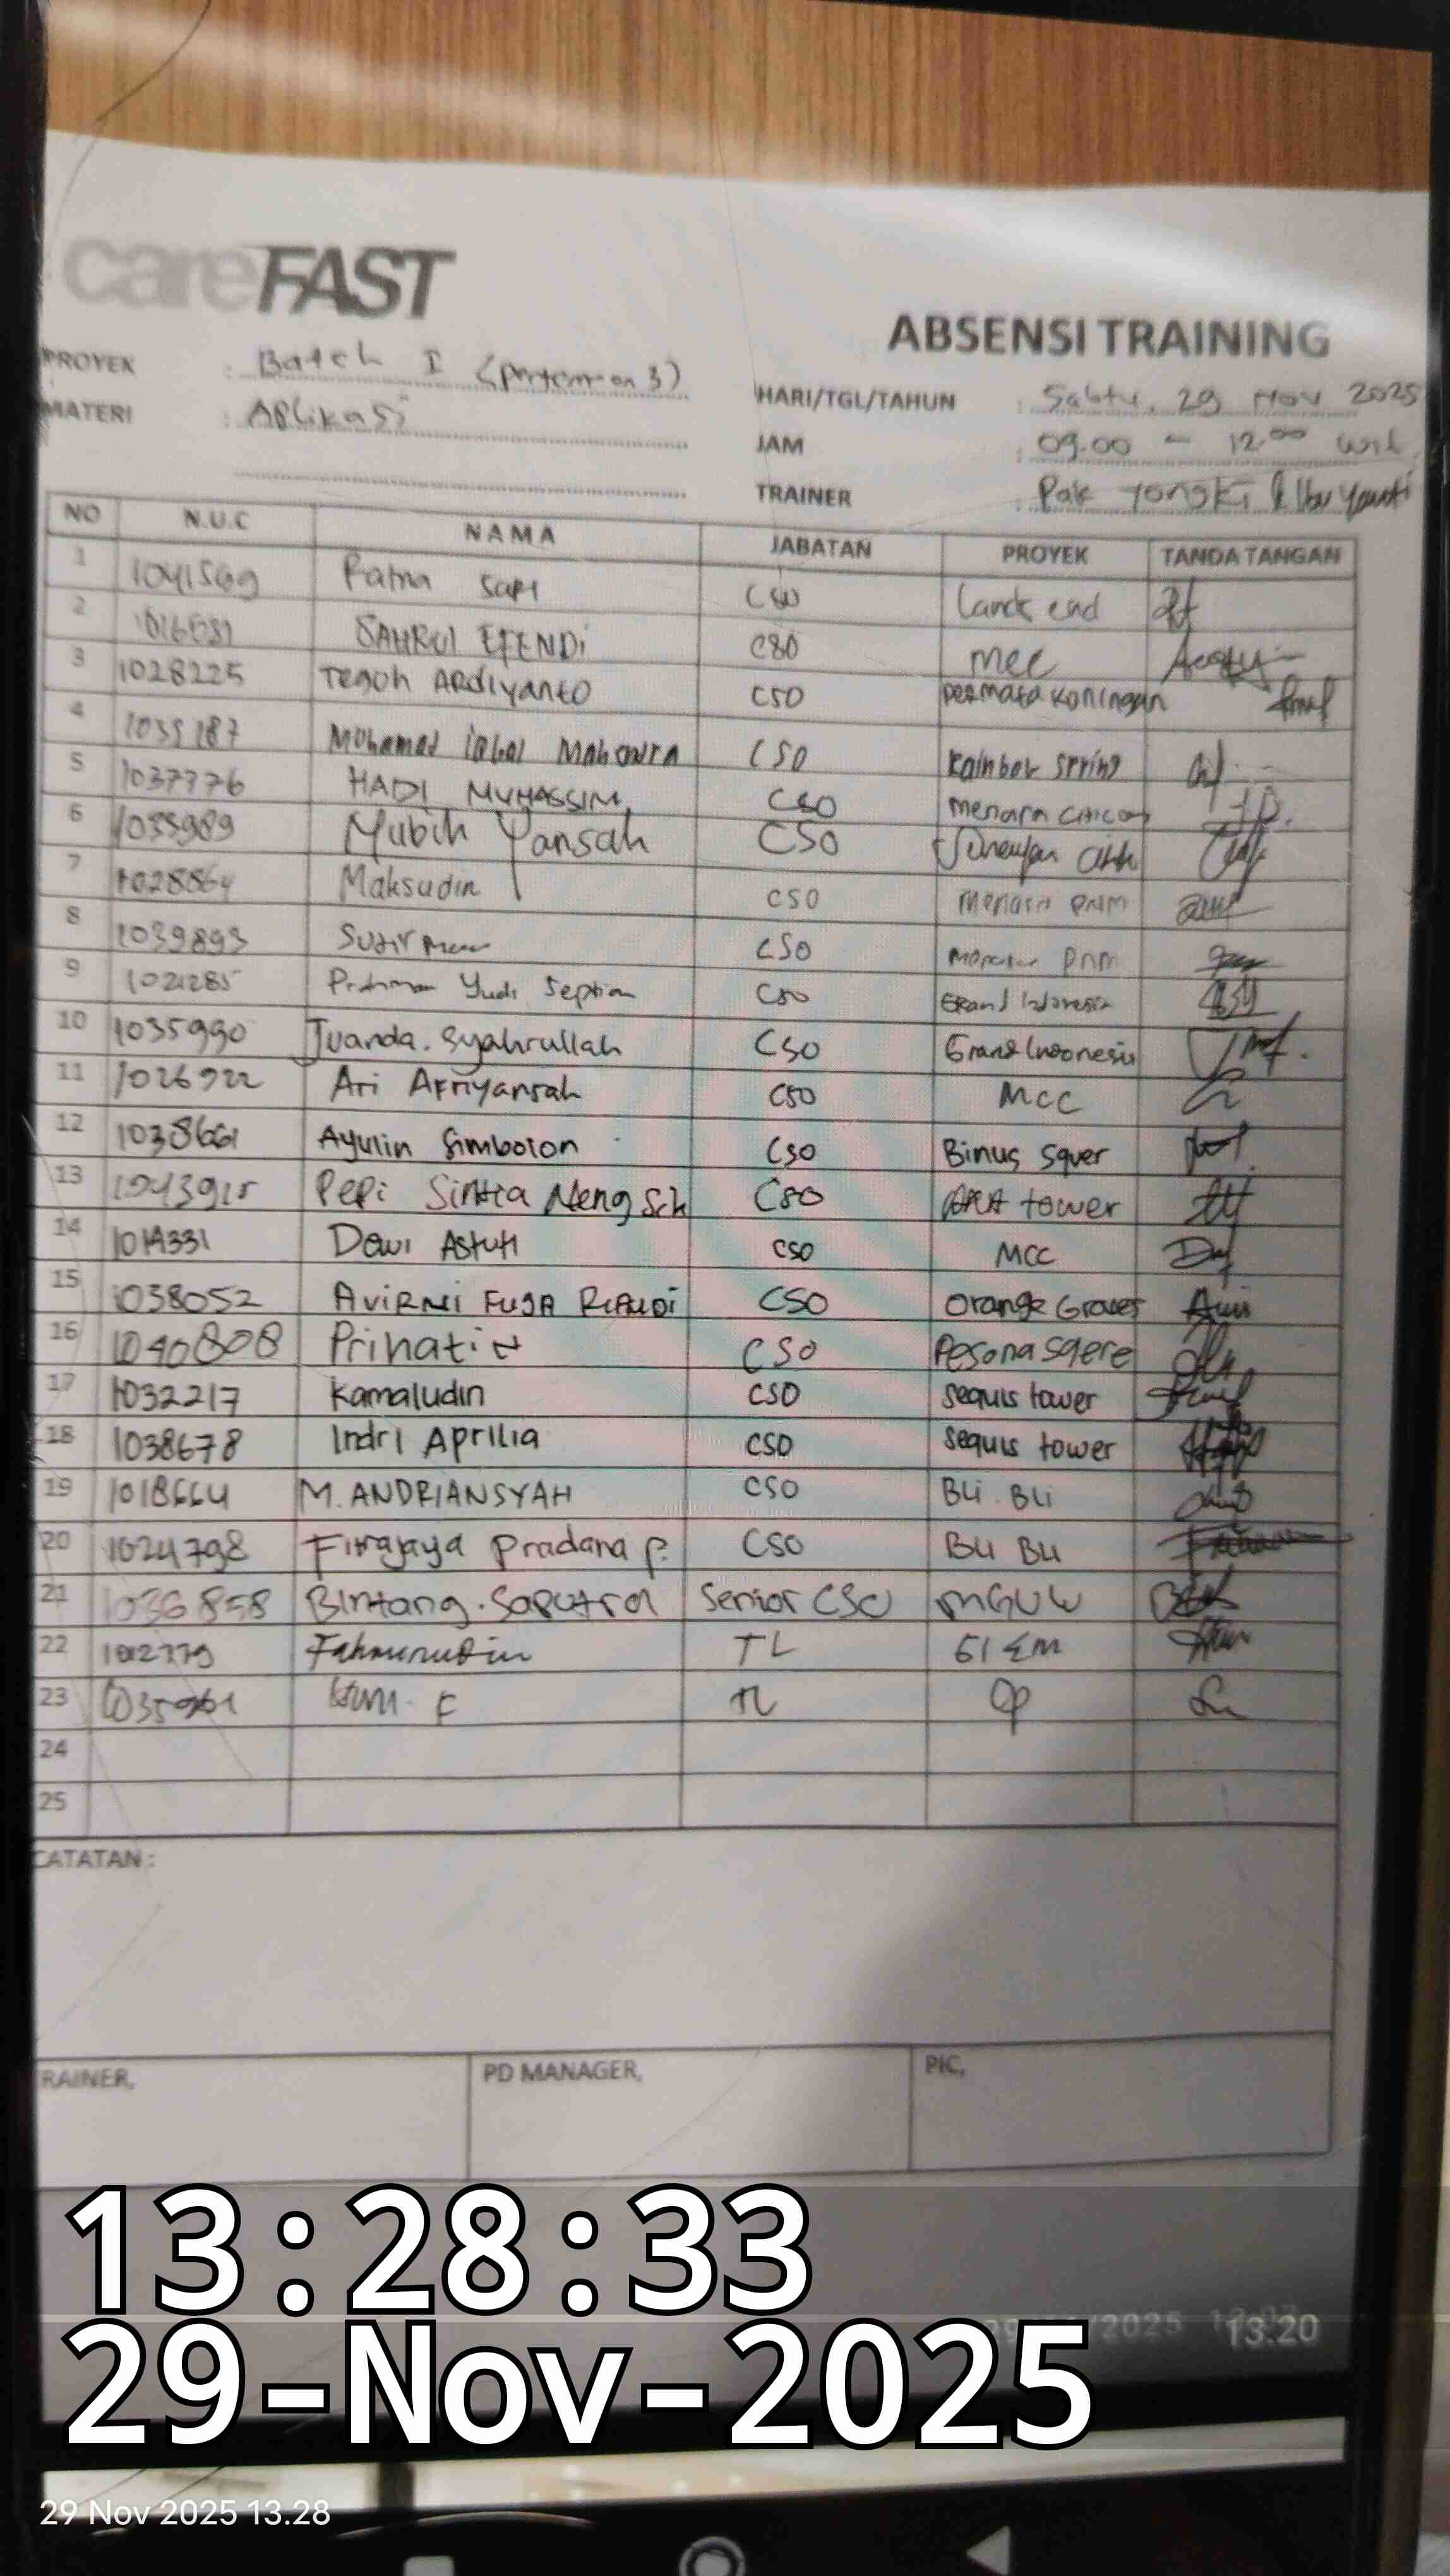 careFAST
ABSENSI TRAINING
PROYEK : Batch I (pertemuan 3)
MATERI : Aplikasi
HARI/TGL/TAHUN : Sabtu, 29 Nov 2025
JAM : 09.00 - 12.00 wib
TRAINER : Pak Yongki & Ibu Yanti
NO N.U.C NAMA JABATAN PROYEK TANDA TANGAN
1 1041569 Ratna Sari CSO Lands end
2 SAHRUL EFENDi CSO MCC
3 1028225 Teguh Ardiyanto CSO Permata Koningan
4 Mohamad iqbal CSO Rainbow Spring
5 1037776 HADI MUHASSIM CSO Menara Citicon
6 1035989 Mubih Yansah CSO
7 1028864 Maksudin CSO Menara PNM
8 1039893 Sudirman CSO Menara PNM
9 Yudi Septian CSO Grand Indonesia
10 1035990 Juanda. Syahrullah CSO Grand Indonesia
11 1026922 Ari Afriyansah CSO MCC
12 1038661 Ayulin Simbolon CSO Binus Sqver
13 1043915 Pepi Sintia CSO tower
14 1014331 Dewi Astuti CSO MCC
15 1038052 CSO Orange Groves
16 1040808 Prihatin CSO Pesona Sqere
17 1032217 Kamaludin CSO Sequis tower
18 1038678 Indri Aprilia CSO Sequis tower
19 1018664 M. ANDRIANSYAH CSO Bli. Bli
20 1024798 Firajaya Pradana P. CSO Bli Bli
21 1036858 Bintang. Saputra Senior CSO
22 TL
23 TL
24
25
CATATAN :
RAINER,
PD MANAGER,
PIC,
13:28:33
29-Nov-2025
13.20
29 Nov 2025 13.28